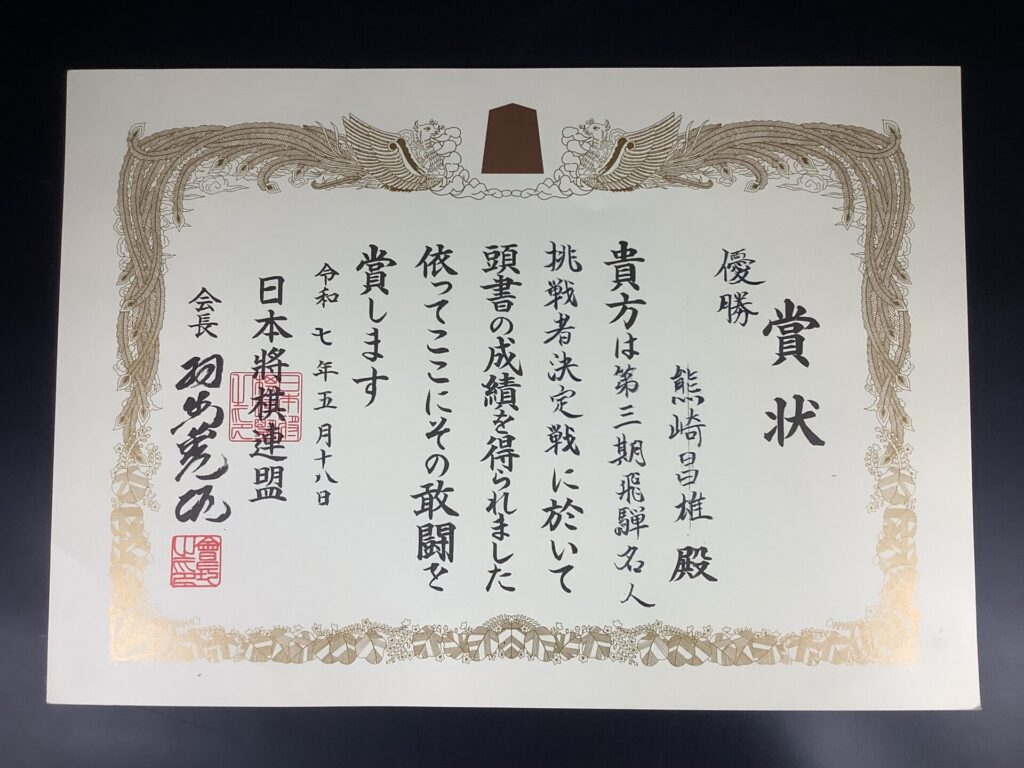 賞状
優勝
熊崎昌雄 殿
貴方は第三期飛騨名人
挑戦者決定戦に於いて
頭書の成績を得られました
依ってここにその敢闘を
賞します
令和七年五月十八日
日本將棋連盟
会長 羽生善治